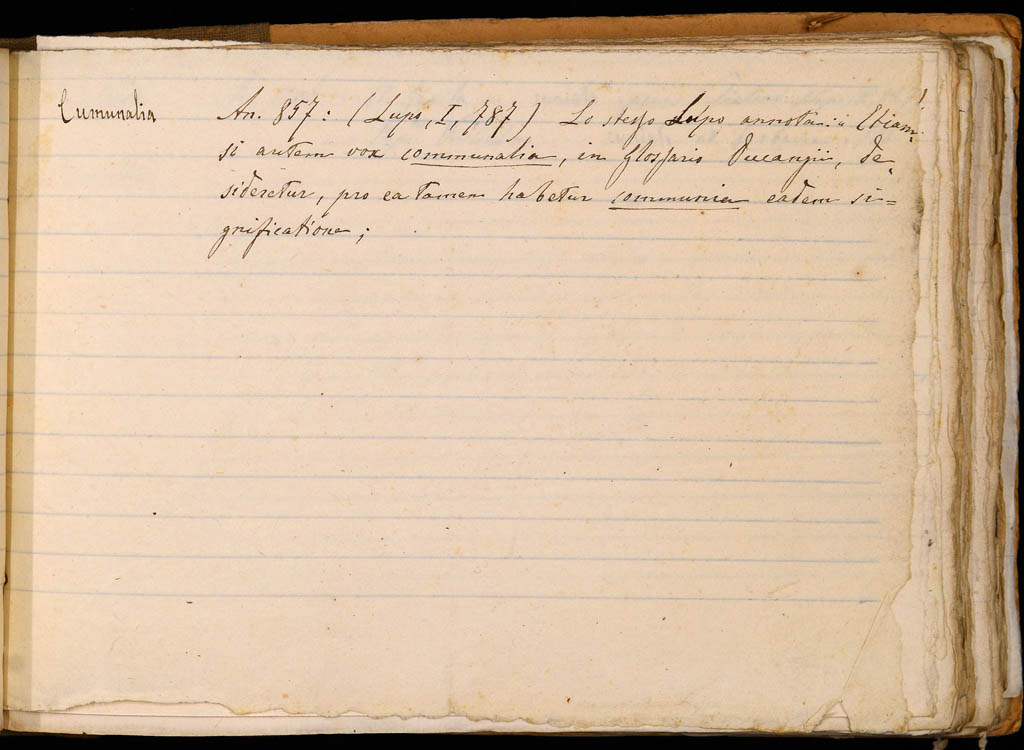 Cumunalia An. 857: (Lupo, I, 787) Lo stesso Lupo annota: "Etiam-
si autem vox communalia, in Glossario Ducangii, de-
sideretur, pro ea tamen habetur communia eadem si=
gnificatione;